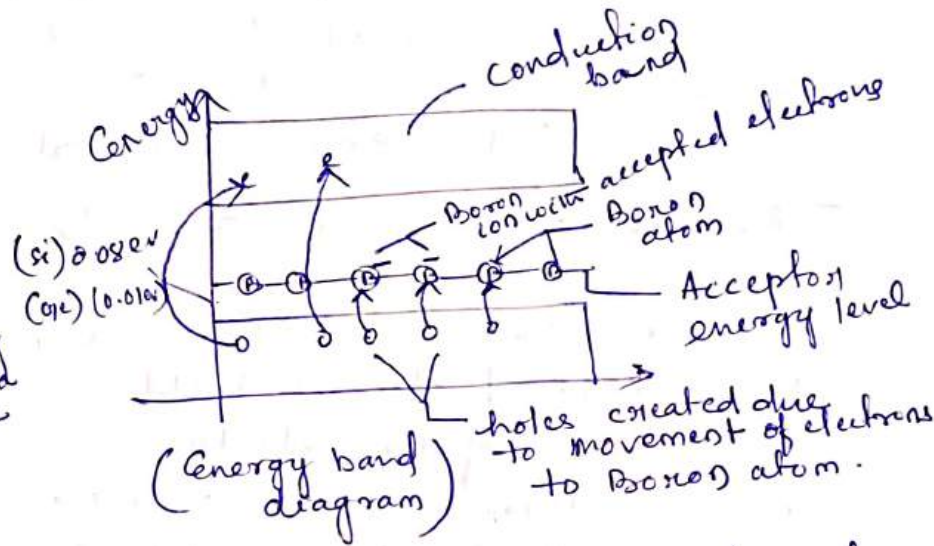 Energy
conduction
band
Boron
ion with accepted electrons
Boron
atom
(si) 0.08ev
B B B B B B
Acceptor
energy level
holes created due
to movement of electrons
to Boron atom.
(Energy band
diagram)